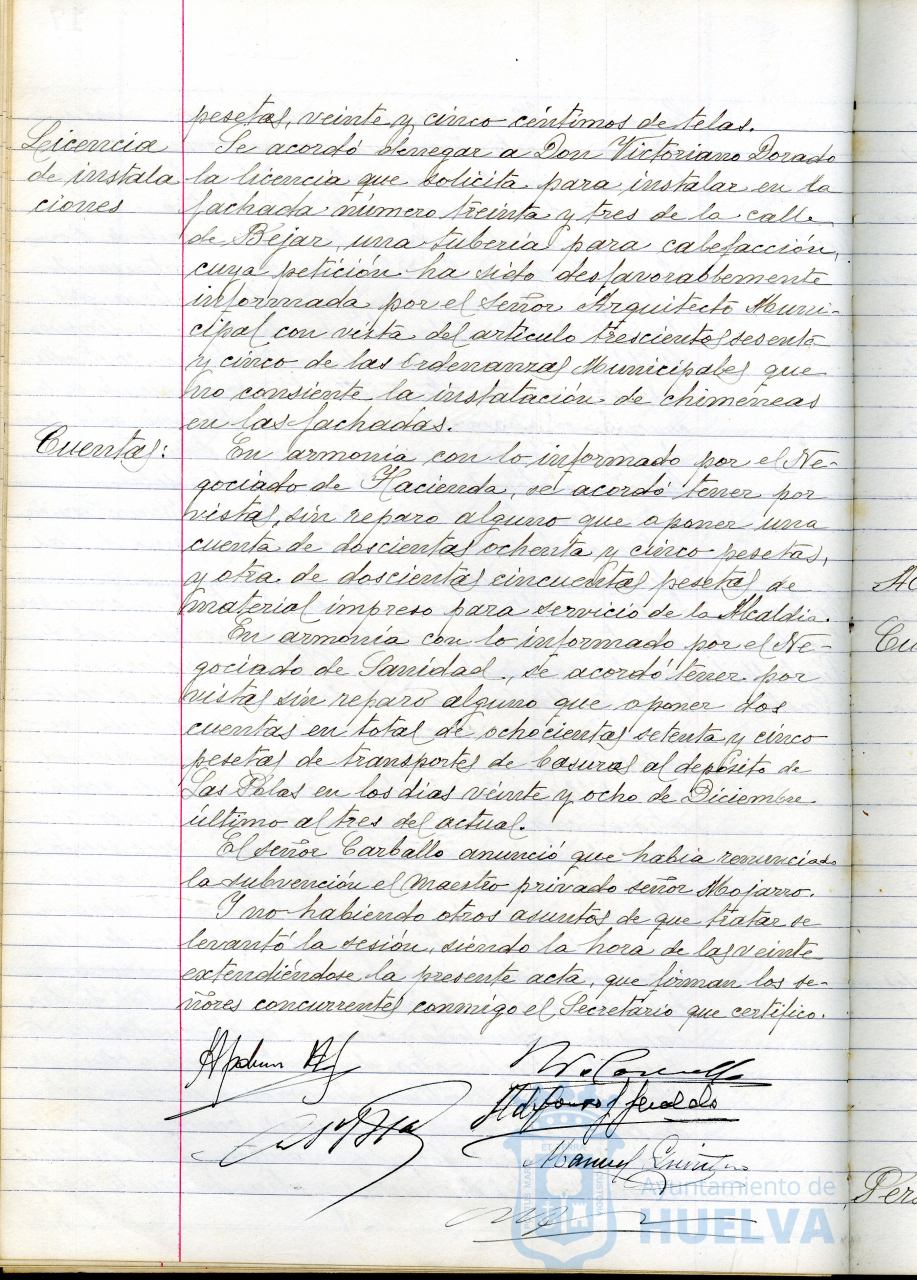 pesetas, veinte y cinco céntimos de telas.
Licencia
de instala
ciones
Se acordó denegar a Don Victoriano Dorado
la licencia que solicita para instalar en la
fachada número treinta y tres de la calle
de Béjar, una tubería para calefacción,
cuya petición ha sido desfavorablemente
informada por el señor Arquitecto Muni-
cipal con vista del artículo trescientos sesenta
y cinco de las Ordenanzas Municipales que
no consiente la instalación de chimeneas
en las fachadas.
Cuentas:
En armonía con lo informado por el Ne-
gociado de Hacienda, se acordó tener por
vistas, sin reparo alguno que oponer una
cuenta de doscientas ochenta y cinco pesetas,
y otra de doscientas cincuentas pesetas de
material impreso para servicio de la Alcaldia.
En armonía con lo informado por el Ne-
gociado de Sanidad, se acordó tener por
vistas sin reparo alguno que oponer dos
cuentas en total de ochocientas setenta y cinco
pesetas de transportes de basuras al depósito de
Las en los dias veinte y ocho de Diciembre
último al tres del actual.
El señor Carballo anunció que habia renunciado
la subvención el maestro privado señor Mojarro.
Y no habiendo otros asuntos de que tratar se
levantó la sesión, siendo la hora de las veinte
extendiéndose la presente acta, que firman los se-
ñores concurrentes conmigo el Secretario que certifico.
Manuel
Ayuntamiento de
HUELVA
Cu
Per